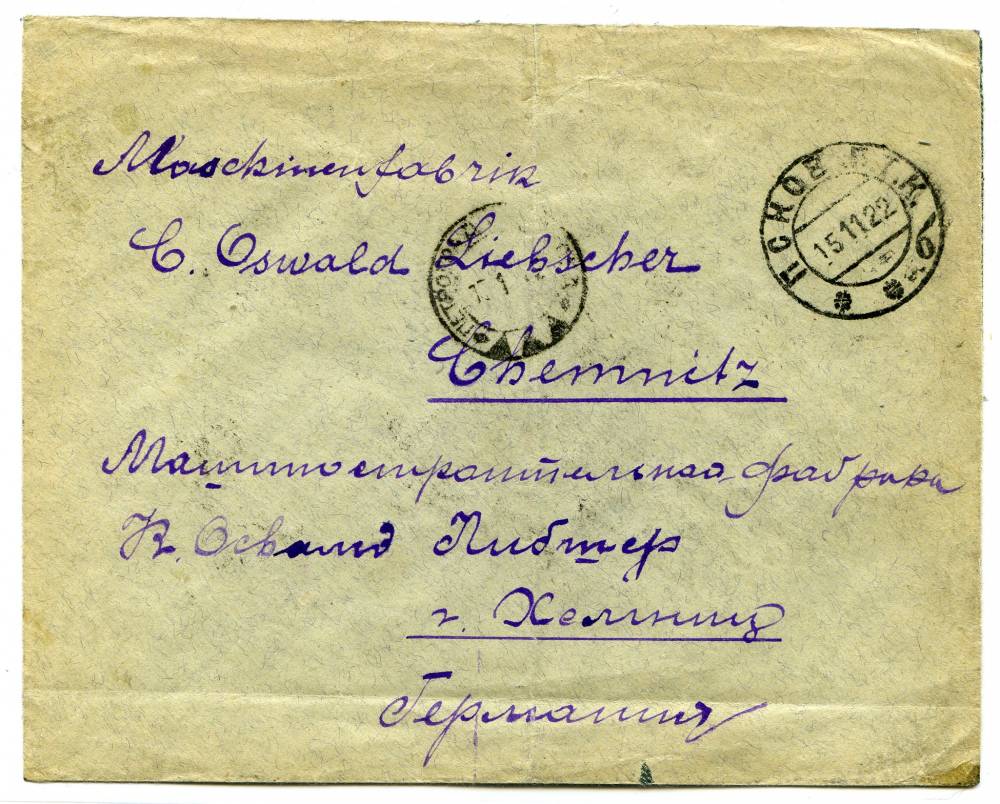 Maschinenfabrik
C. Oswald Liebscher
Chemnitz
Машиностроительная фабрика
К. Освальд Либшер
г. Хемниц
Германия
ПСНОЕ
15.11.22
ПЕТРО